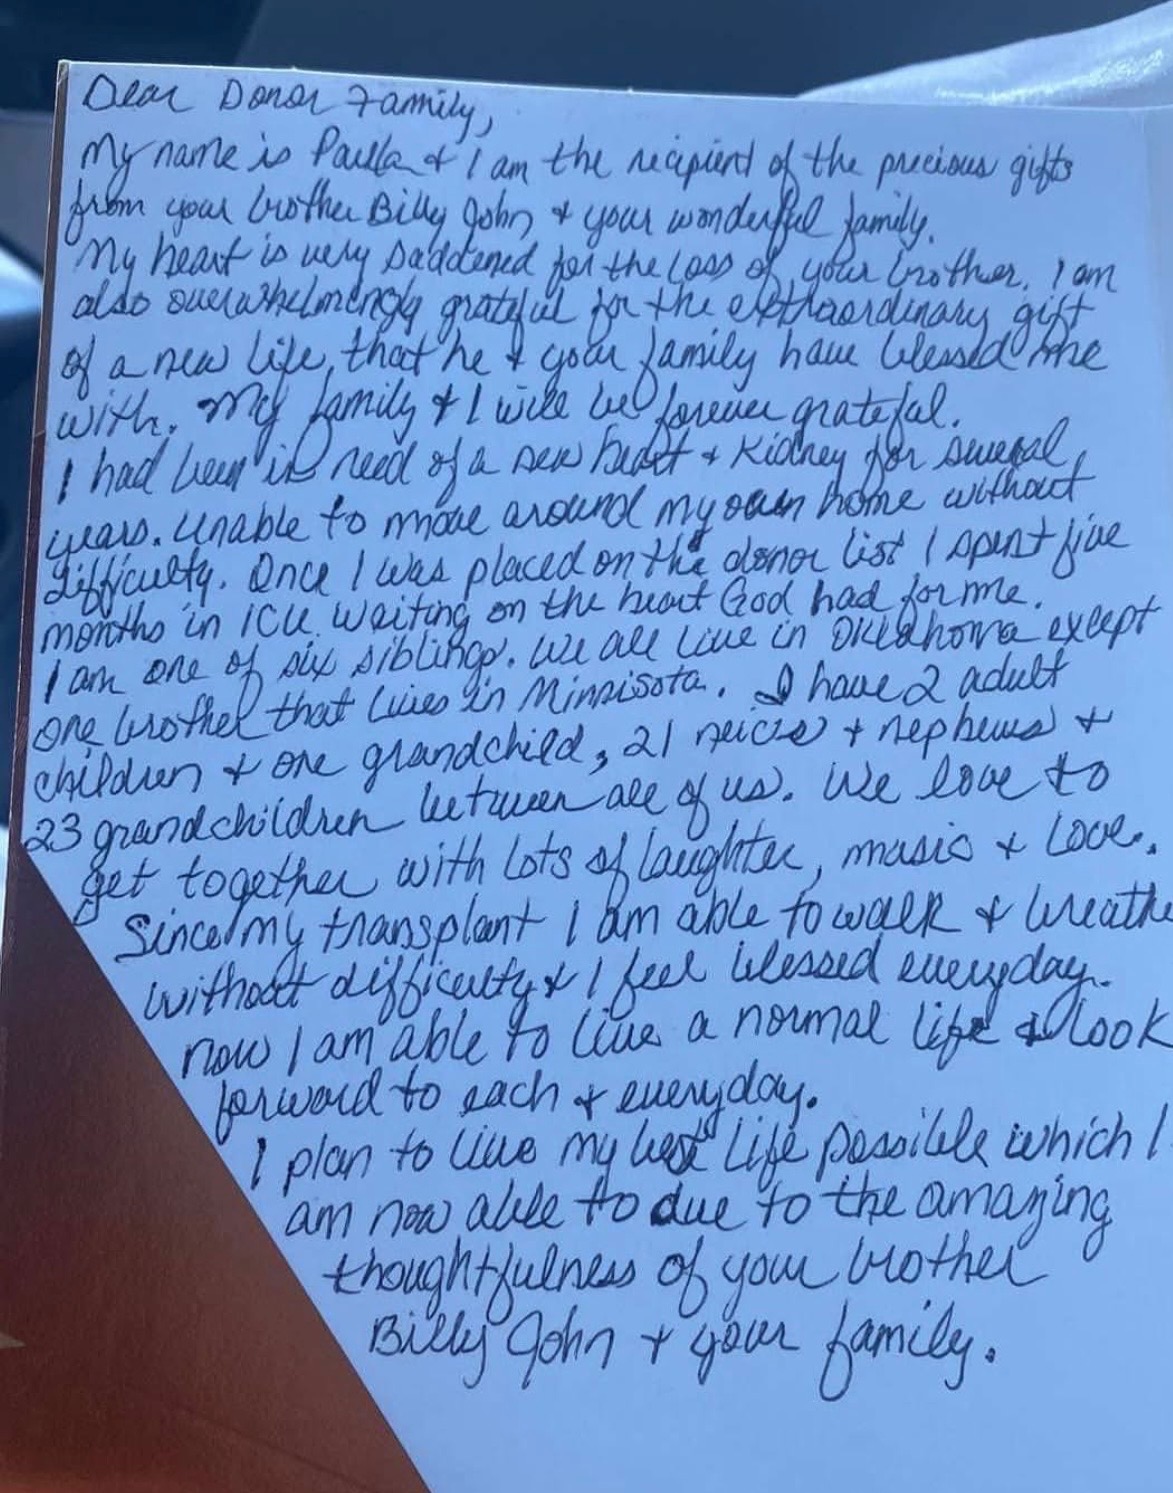 Dear Donor Family,
My name is Paula & I am the recipient of the precious gifts
from your brother Billy John & your wonderful family.
My heart is very saddened for the loss of your brother. I am
also overwhelmingly grateful for the extraordinary gift
of a new life, that he & your family have blessed me
with. My family & I will be forever grateful.
I had been in need of a new heart & Kidney for several
years. Unable to move around my own home without
difficulty. Once I was placed on the donor list I spent five
months in ICU waiting on the heart God had for me.
I am one of six siblings. We all live in Oklahoma except
one brother that lives in Minnisota. I have 2 adult
children & one grandchild, 21 neices & nephews &
23 grandchildren between all of us. We love to
get together with lots of laughter, music & Love.
Since my transplant I am able to walk & breathe
without difficulty & I feel blessed everyday.
now I am able to live a normal life & look
forward to each & everyday.
I plan to live my best life possible which I
am now able to due to the amazing
thoughtfulness of your brother
Billy John & your family.